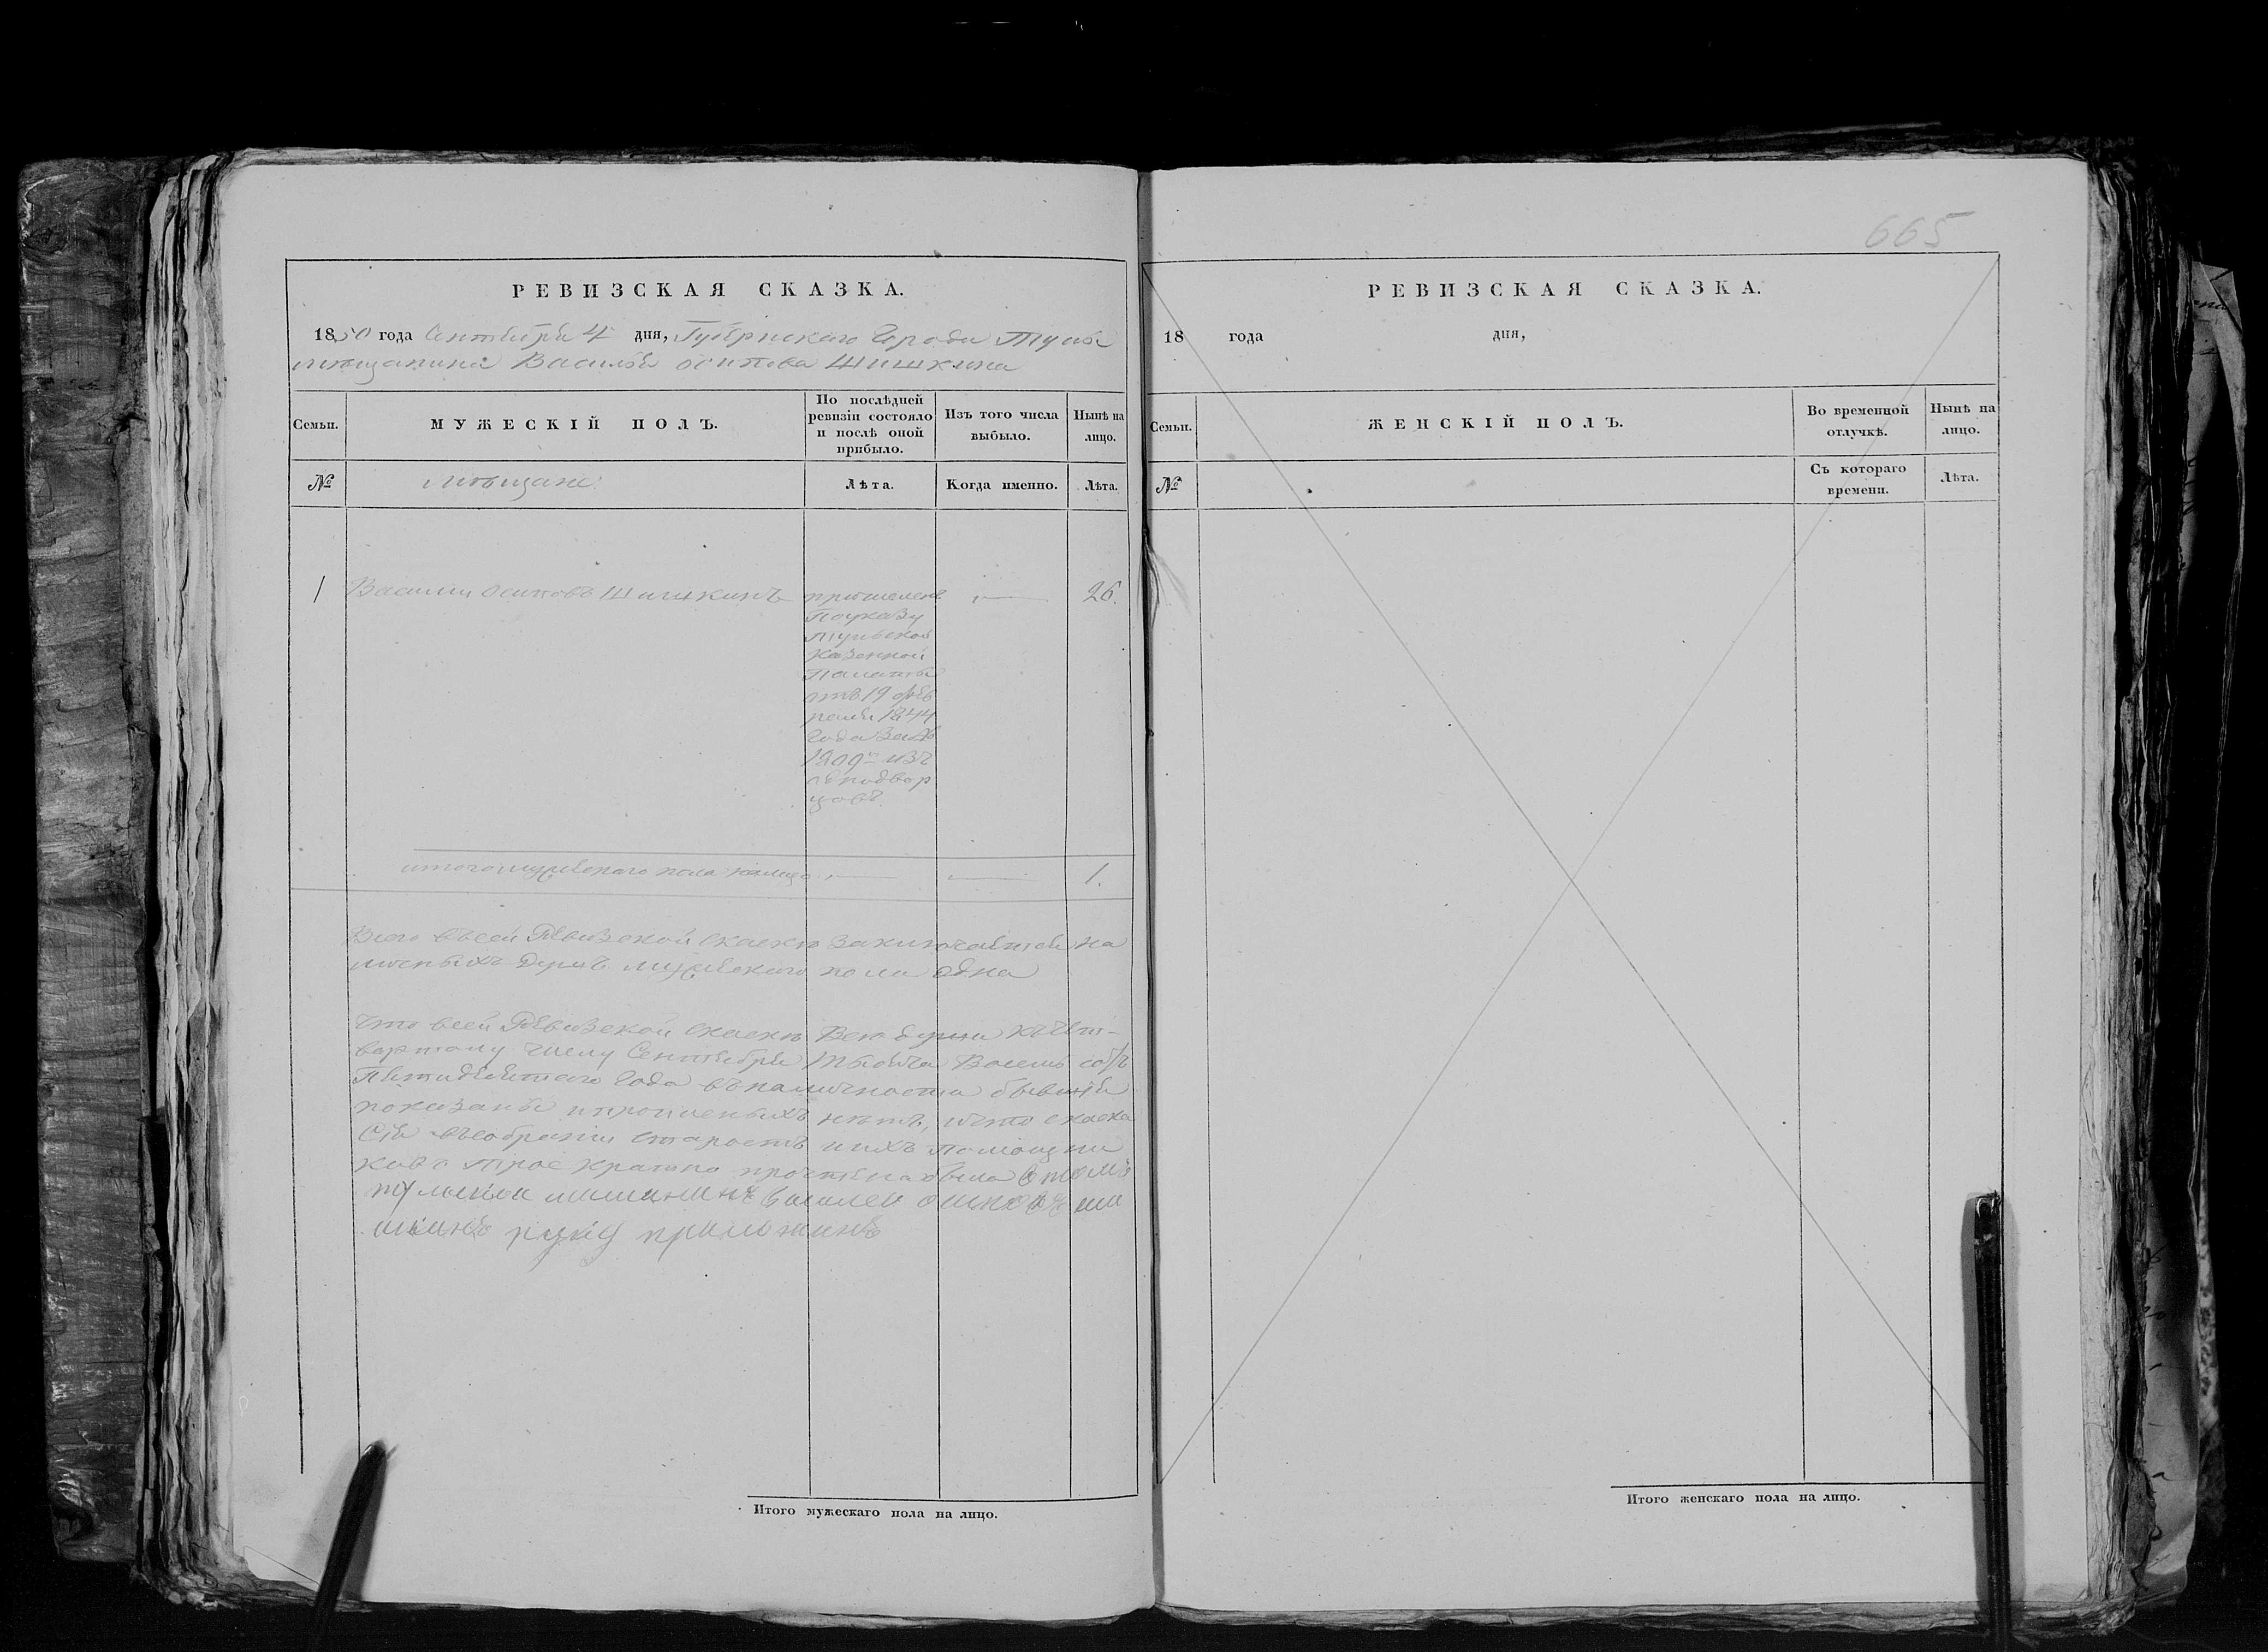 665
РЕВИЗСКАЯ СКАЗКА.
1850 года Сентября 4 дня, Губернскаго Города Тулы
мѣщанина Василья осипова Шишкина
Семьи.
МУЖЕСКІЙ ПОЛЪ.
По послѣдней
ревизіи состояло
и послѣ оной
прибыло.
Изъ того числа
выбыло.
Нынѣ на
лицо.
№
мѣщане.
Лѣта.
Когда именно.
Лѣта.
1 Василий Осиповъ Шишкинъ 26.
причисленъ
По указу
Тульской
Казенной
Палаты
отъ 19 фев
раля 1844
Года за №
1809м изъ
однодвор
цовъ.
итого мужескаго пола налицо 1.
Всего въ сей Ревизской скаскѣ заключается на
личныхъ душъ мужескаго пола одна
Что всей Ревизской скаскѣ Все души къ чет-
вертому числу Сентября Тысяча Восемь сотъ
Пятидесятаго Года въ наличности бывшія
показаны и прописныхъ нѣтъ, и что скаска
Сія въ собраніи старостъ и ихъ помощни
ковъ трое кратно прочтена была в томъ
тулской мешанинъ василеи осиповъ ши
шкинъ руку приложилъ
Итого мужескаго пола на лицо.
РЕВИЗСКАЯ СКАЗКА.
18 года дня,
Семьи.
ЖЕНСКІЙ ПОЛЪ.
Во временной
отлучкѣ.
Нынѣ на
лицо.
№
Съ котораго
времени.
Лѣта.
Итого женскаго пола на лицо.